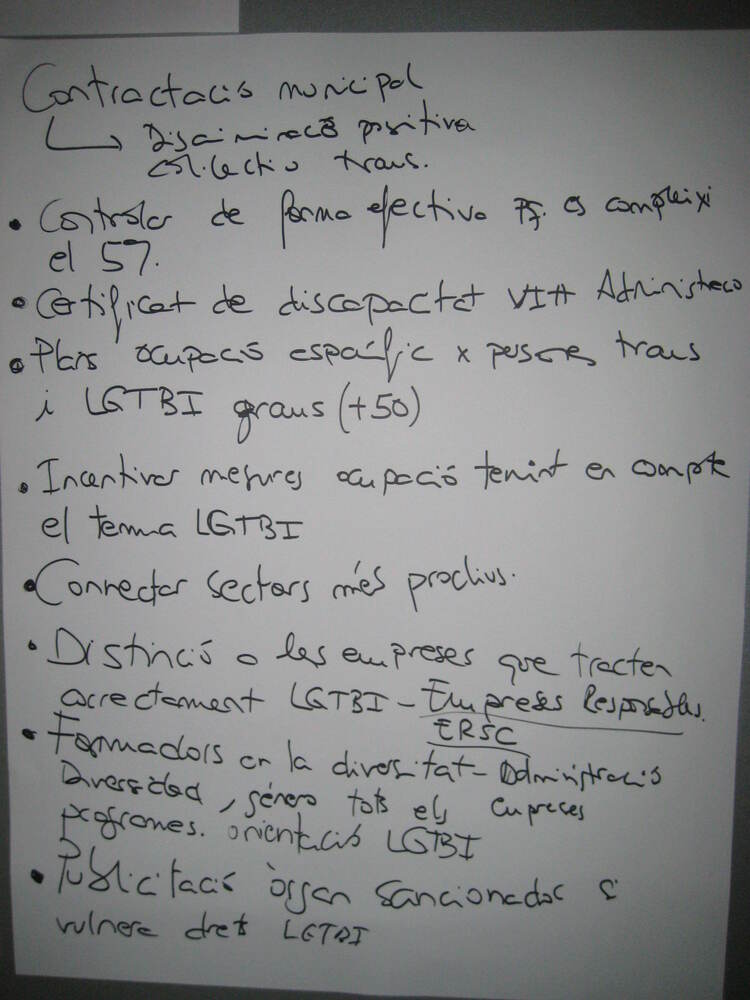 Contractació municipal
Discriminació positiva
col·lectiu trans.
• Controlar de forma efectiva pq. es compleixi
el 57.
• Certificat de discapacitat VIH Administració
• Plans ocupació específic x persones trans
i LGTBI grans (+50)
• Incentivar mesures ocupació tenint en compte
el tema LGTBI
• Connectar sectors més proclius.
• Distinció a les empreses que tracten
correctament LGTBI - Empreses Responsables.
ERSC
• Formadors en la diversitat - Administració
Diversidad, género tots els empreses
programes. orientació LGTBI
• Publicitació òrgan sancionador si
vulnera drets LGTBI